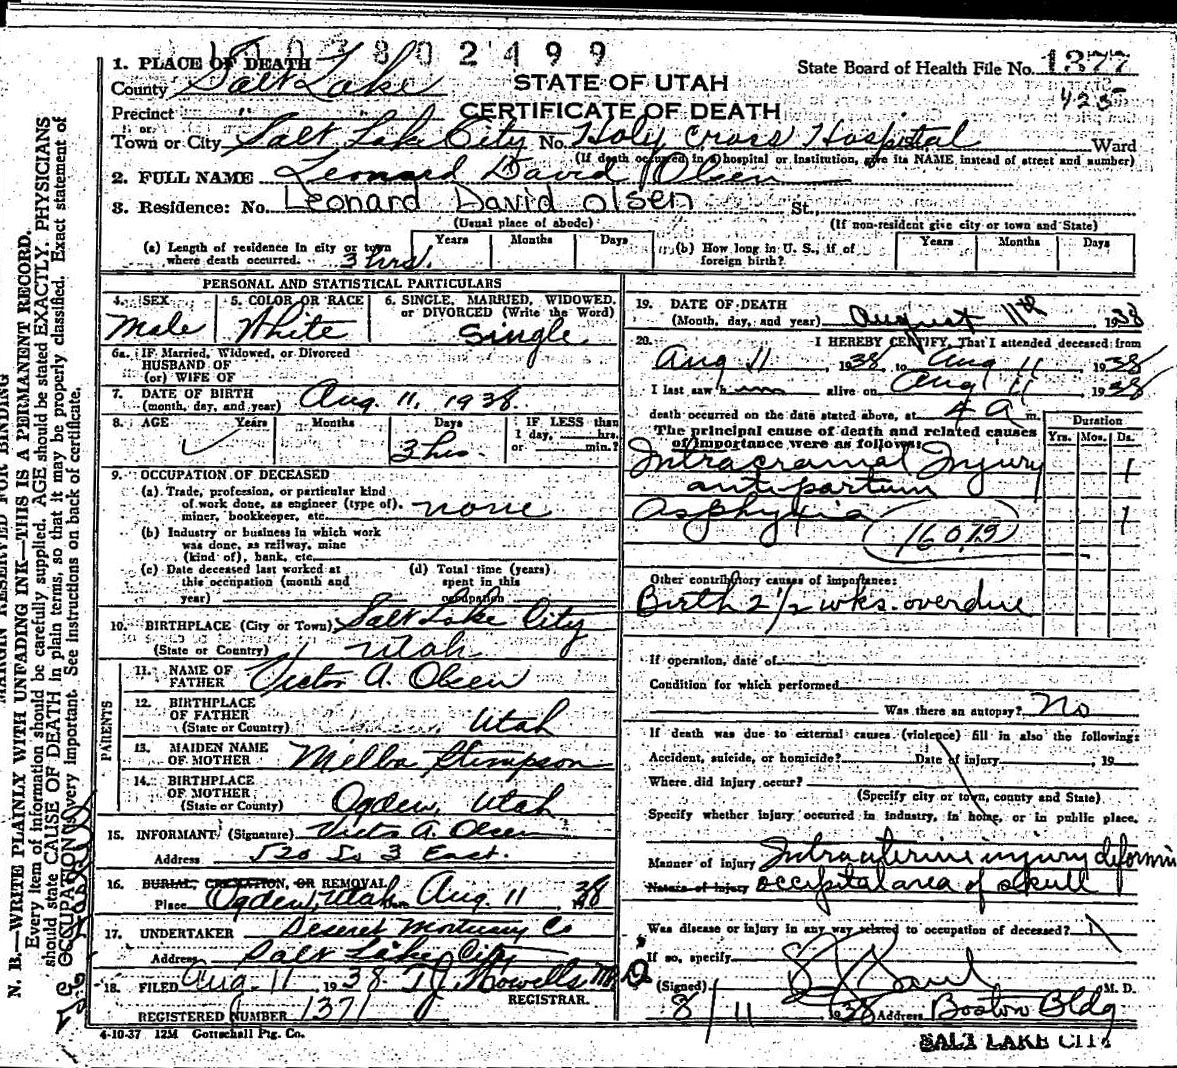 1. PLACE OF DEATH
3 8 0 2 4 9 9
County Salt Lake
STATE OF UTAH
CERTIFICATE OF DEATH
State Board of Health File No. 1377
425
Precinct
or
Town or City Salt Lake City No. Holy Cross Hospital Ward
(If death occurred in a hospital or institution, give its NAME, instead of street and number)
2. FULL NAME Leonard David Olsen
3. Residence: No. Leonard David Olsen St.,
(Usual place of abode) (If non-resident give city or town and State)
(a) Length of residence in city or town where death occurred. 3 hrs. Years Months Days
(b) How long in U. S., if of foreign birth? Years Months Days
PERSONAL AND STATISTICAL PARTICULARS
4. SEX Male
5. COLOR OR RACE White
6. SINGLE, MARRIED, WIDOWED, or DIVORCED (Write the Word) Single
6a. IF Married, Widowed, or Divorced
HUSBAND OF
(or) WIFE OF
7. DATE OF BIRTH
(month, day, and year) Aug. 11, 1938.
8. AGE Years Months Days 3 hrs. IF LESS than
1 day, hrs.
or min.?
9. OCCUPATION OF DECEASED
(a) Trade, profession, or particular kind
of work done, as engineer (type of),
miner, bookkeeper, etc. none
(b) Industry or business in which work
was done, as railway, mine
(kind of), bank, etc.
(c) Date deceased last worked at
this occupation (month and
year)
(d) Total time (years)
spent in this
occupation
10. BIRTHPLACE (City or Town) Salt Lake City
(State or Country) Utah
PARENTS
11. NAME OF
FATHER Victor A. Olsen
12. BIRTHPLACE
OF FATHER
(State or Country) Utah
13. MAIDEN NAME
OF MOTHER Melba Stimpson
14. BIRTHPLACE
OF MOTHER
(State or County) Ogden, Utah
15. INFORMANT (Signature) Victor A. Olsen
Address 520 So 3 East.
16. BURIAL, CREMATION, OR REMOVAL
Place Ogden, Utah Aug. 11, 1938
17. UNDERTAKER Deseret Mortuary Co
Address Salt Lake City
18. FILED Aug. 11 1938. T. J. Howells, M.D.
REGISTRAR.
REGISTERED NUMBER 1371
4-10-37 12M Gottschall Ptg. Co.
19. DATE OF DEATH
(Month, day, and year) August 11th 1938
20. I HEREBY CERTIFY, That I attended deceased from
Aug 11, 1938, to Aug 11, 1938
I last saw him alive on Aug 11, 1938
death occurred on the date stated above, at 4 A m.
The principal cause of death and related causes
of importance were as follows:
Duration
Yrs. Mos. Ds.
Intracranial Injury 1
antipartum
Asphyxia 1
Other contributory causes of importance:
Birth 2 1/2 wks. overdue
If operation, date of
Condition for which performed
Was there an autopsy? No
If death was due to external causes (violence) fill in also the following:
Accident, suicide, or homicide? Date of injury , 19
Where did injury occur?
(Specify city or town, county and State)
Specify whether injury occurred in industry, in home, or in public place.
Manner of injury Intrauterine injury deforming
Nature of injury occipital area of skull
Was disease or injury in any way related to occupation of deceased?
If so, specify
(Signed) M. D.
8/11 1938 Address Boston Bldg
SALT LAKE CITY
MARGIN RESERVED FOR BINDING
N. B.—WRITE PLAINLY WITH UNFADING INK—THIS IS A PERMANENT RECORD.
Every item of information should be carefully supplied. AGE should be stated EXACTLY. PHYSICIANS
should state CAUSE OF DEATH in plain terms, so that it may be properly classified. Exact statement of
OCCUPATION is very important. See instructions on back of certificate.